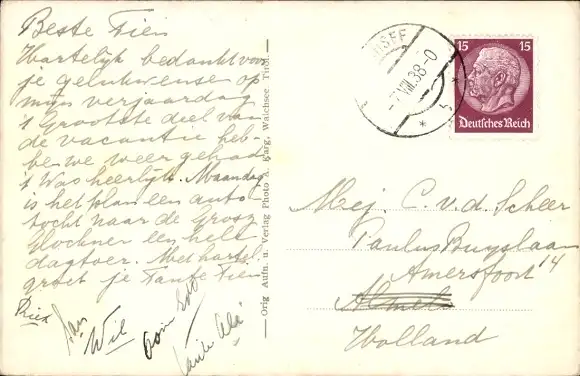 Beste Fien
Hartelijk bedankt voor
je gelukwensen op
mijn verjaardag
't Grootste deel van
de vacantie heb-
ben we weer gehad
't Was heerlijk. Maandag
is het plan een auto
tocht naar de Gross
Glockner een hele
dagtoer. Met hartel.
groet je Tante Fien
Wil
Tante Ali
Orig. Aufn. u. Verlag Photo A. Karg, Walchsee, Tirol.
7.VIII.38-0
15 15
Deutsches Reich
Mej. C. v. d. Scheer
Paulus Buyslaan 14
Amersfoort
Almelo
Holland